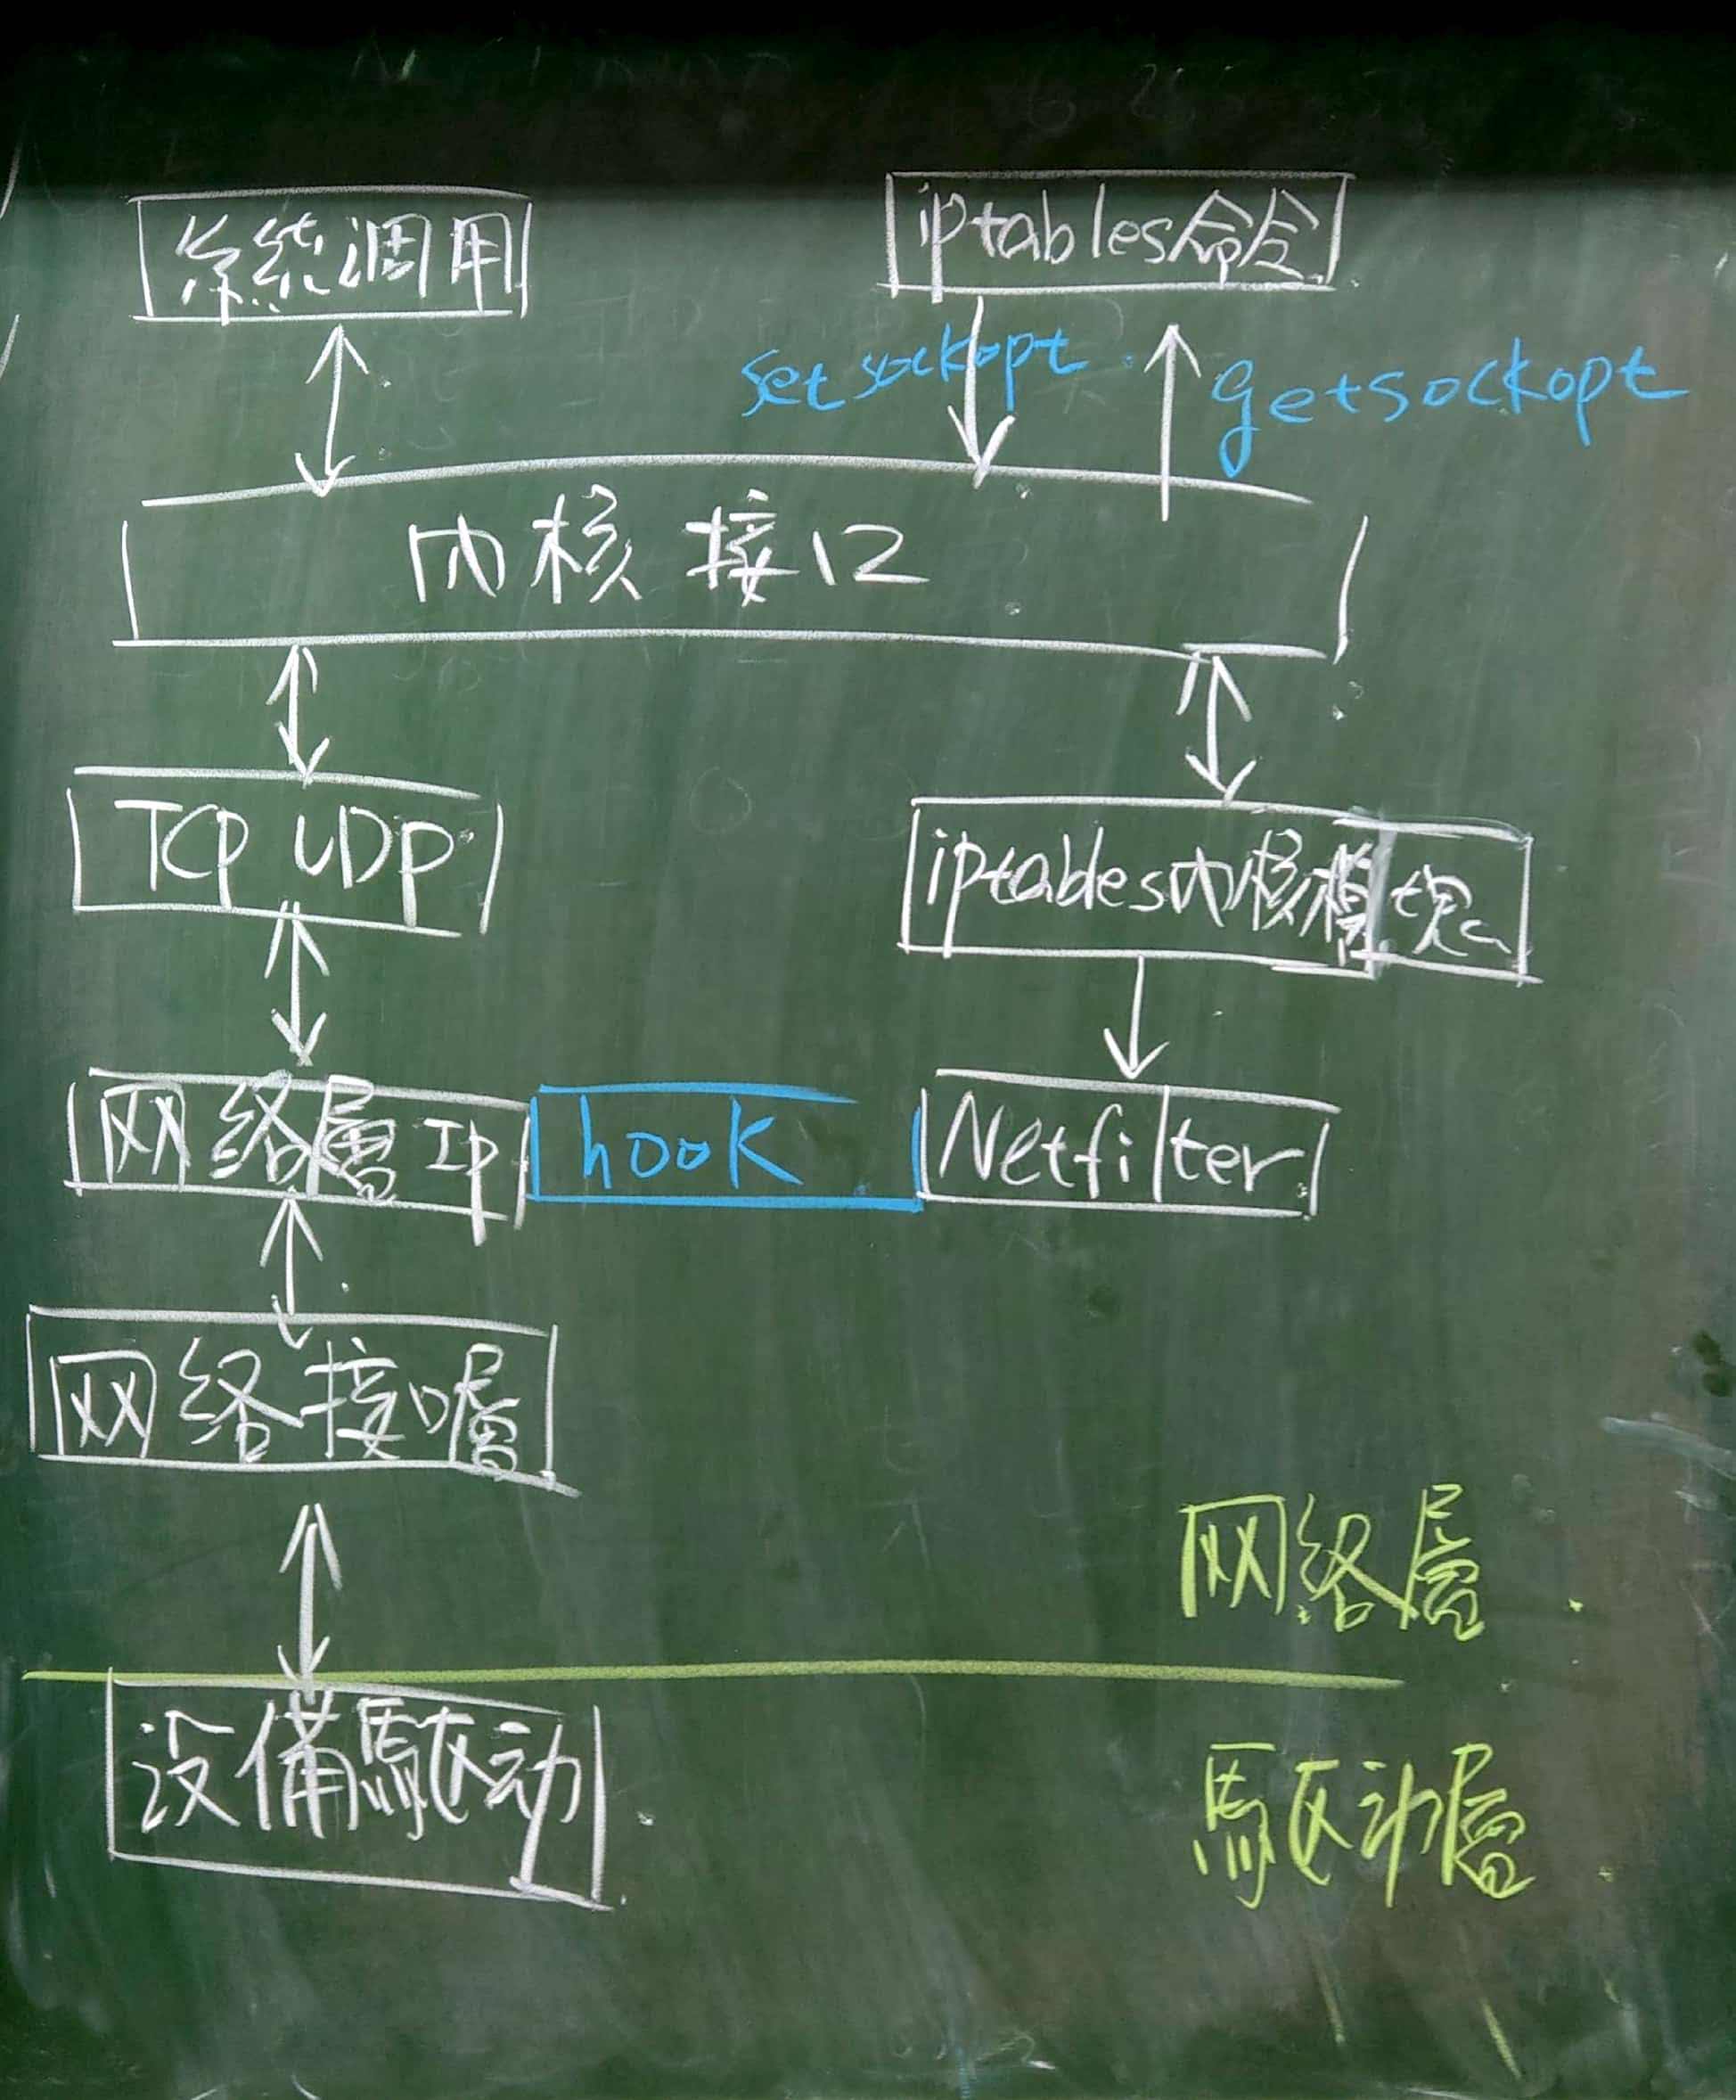 系统调用
iptables命令
setsockopt
getsockopt
内核接口
TCP UDP
iptables内核模块
网络層IP
hook
Netfilter
网络接口層
网络層
设備驅动
驅动層